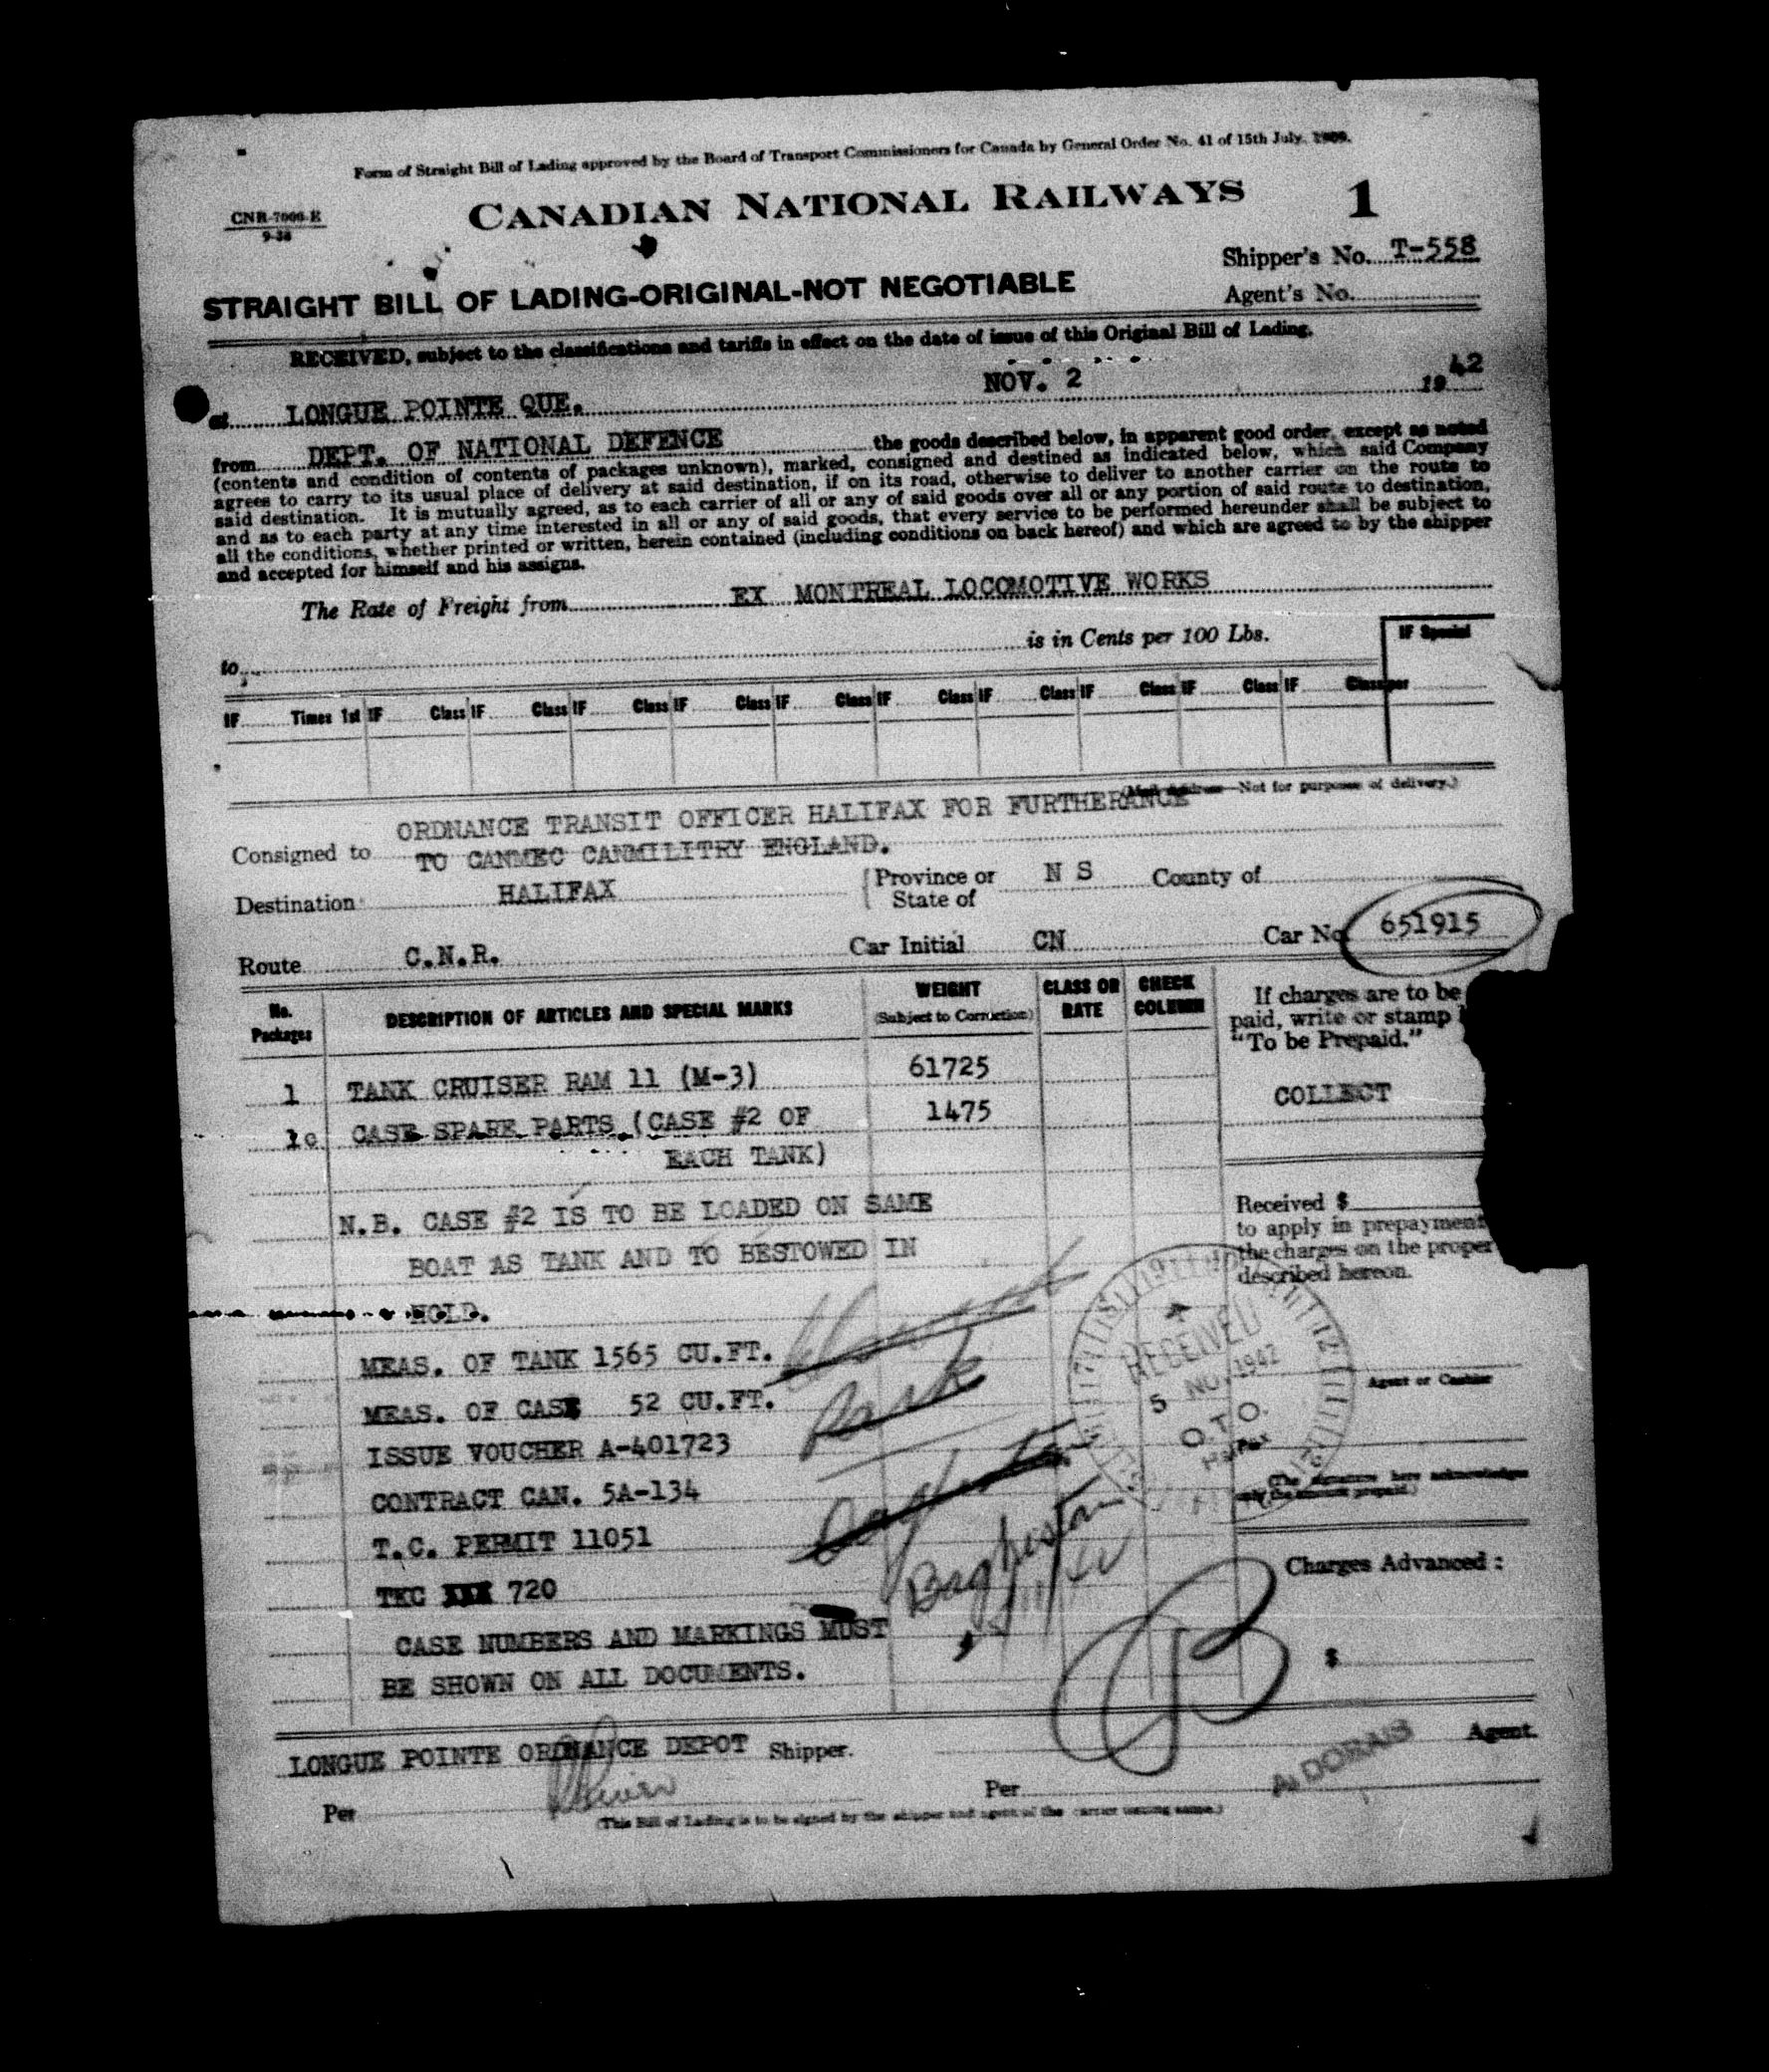 Form of Straight Bill of Lading approved by the Board of Transport Commissioners for Canada by General Order No. 41 of 15th July, 1909.
CNR-7000-E
9-38
CANADIAN NATIONAL RAILWAYS 1
Shipper's No. T-558
STRAIGHT BILL OF LADING-ORIGINAL-NOT NEGOTIABLE
Agent's No.
RECEIVED, subject to the classifications and tariffs in effect on the date of issue of this Original Bill of Lading.
at LONGUE POINTE QUE. NOV. 2 1942
from DEPT. OF NATIONAL DEFENCE the goods described below, in apparent good order, except as noted
(contents and condition of contents of packages unknown), marked, consigned and destined as indicated below, which said Company
agrees to carry to its usual place of delivery at said destination, if on its road, otherwise to deliver to another carrier on the route to
said destination. It is mutually agreed, as to each carrier of all or any of said goods over all or any portion of said route to destination,
and as to each party at any time interested in all or any of said goods, that every service to be performed hereunder shall be subject to
all the conditions, whether printed or written, herein contained (including conditions on back hereof) and which are agreed to by the shipper
and accepted for himself and his assigns.
The Rate of Freight from EX MONTREAL LOCOMOTIVE WORKS
to is in Cents per 100 Lbs.
IF Special
IF Times 1st IF Class IF Class IF Class IF Class IF Class IF Class IF Class IF Class IF Class IF Class per
(Mail Address—Not for purposes of delivery.)
ORDNANCE TRANSIT OFFICER HALIFAX FOR FURTHERANCE
Consigned to TO CANMEC CANMILITRY ENGLAND.
Destination HALIFAX Province or State of N S County of
Route C.N.R. Car Initial CN Car No. 651915
No. Packages DESCRIPTION OF ARTICLES AND SPECIAL MARKS WEIGHT (Subject to Correction) CLASS OR RATE CHECK COLUMN
If charges are to be
paid, write or stamp
"To be Prepaid."
COLLECT
1 TANK CRUISER RAM 11 (M-3) 61725
1c CASE SPARE PARTS (CASE #2 OF 1475
EACH TANK)
N.B. CASE #2 IS TO BE LOADED ON SAME
BOAT AS TANK AND TO BESTOWED IN
HOLD.
Received $
to apply in prepayment
the charges on the proper
described hereon.
MEAS. OF TANK 1565 CU.FT.
MEAS. OF CASE 52 CU.FT.
ISSUE VOUCHER A-401723
CONTRACT CAN. 5A-134
T.C. PERMIT 11051
TKC XXX 720
CASE NUMBERS AND MARKINGS MUST
BE SHOWN ON ALL DOCUMENTS.
RECEIVED
5 NOV 1942
O.T.O.
Halifax
Agent or Cashier
(The signature here acknowledges
only the amount prepaid.)
Charges Advanced:
$
LONGUE POINTE ORDNANCE DEPOT Shipper.
A. DORAIS Agent.
Per Per
(This Bill of Lading is to be signed by the shipper and agent of the carrier issuing same.)